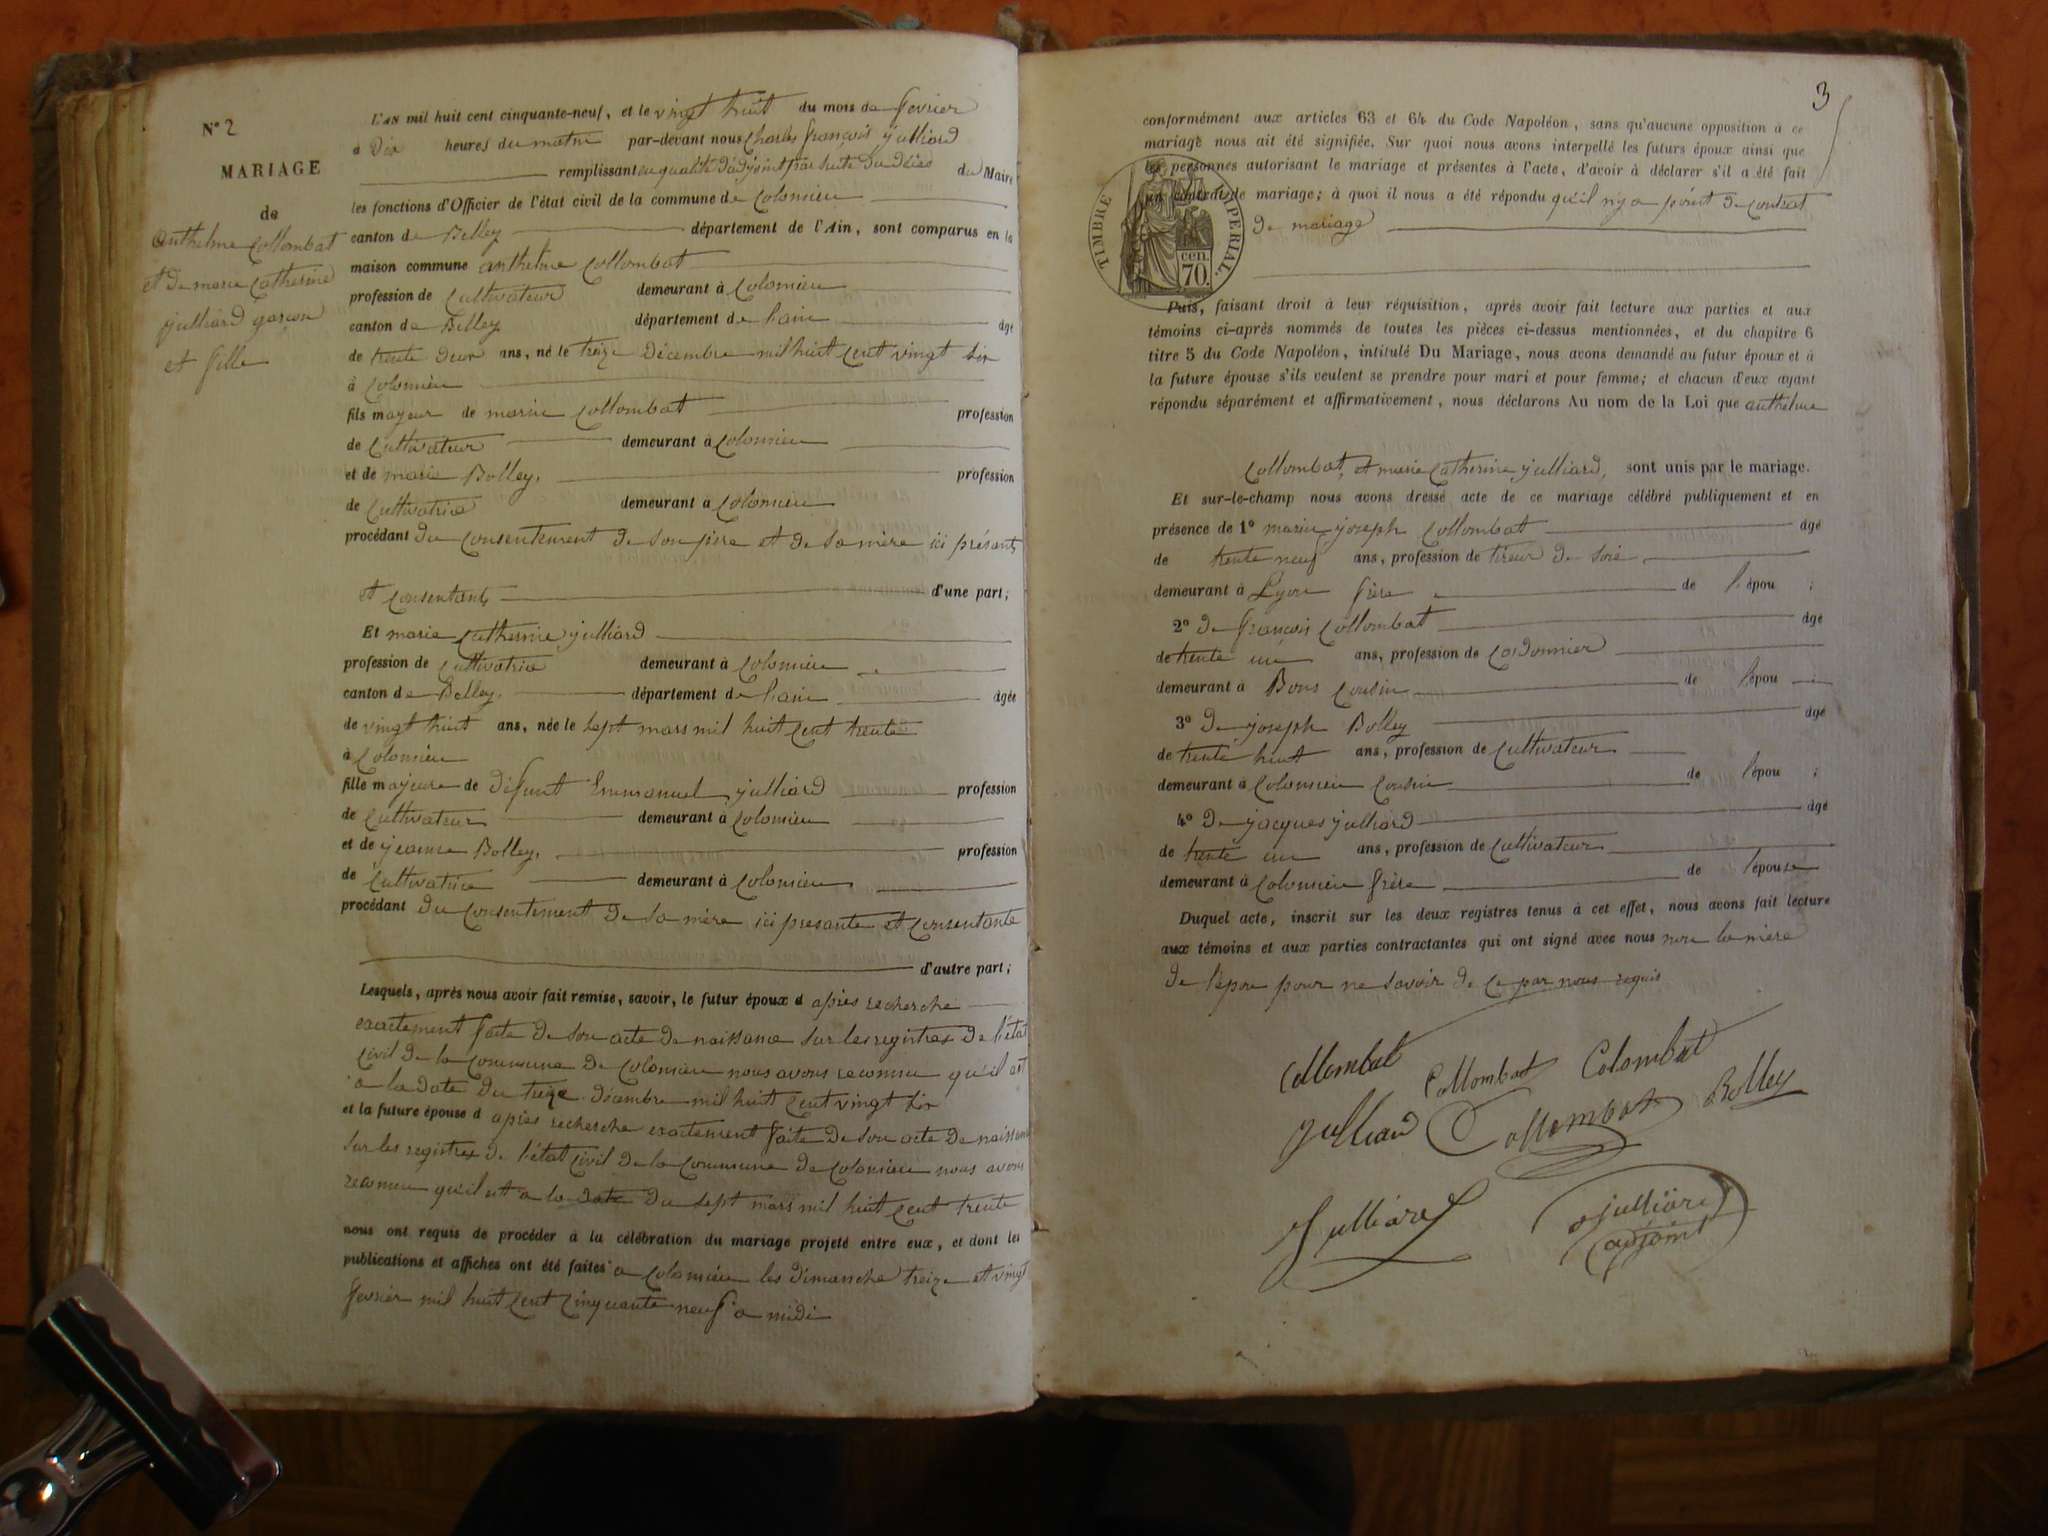 N° 2
MARIAGE
de
anthelme Collombat
et de marie Catherine
julliard garçon
et fille
L'AN mil huit cent cinquante-neuf, et le vingt huit du mois de fevrier
à Dix heures du matin par-devant nous Charles françois julliard
remplissant en qualité d'adjoint par suite du décès du Maire
les fonctions d'Officier de l'état civil de la commune de Colomieu
canton de Belley département de l'Ain, sont comparus en la
maison commune anthelme Collombat
profession de Cultivateur demeurant à Colomieu
canton de Belley département de l'ain âgé
de trente deux ans, né le treize décembre mil huit cent vingt six
à Colomieu
fils majeur de marin Collombat profession
de Cultivateur demeurant à Colomieu
et de marie Bolley, profession
de Cultivatrice demeurant à Colomieu
procédant du consentement de son père et de sa mère ici présents
et consentants d'une part;
Et marie Catherine julliard
profession de Cultivatrice demeurant à Colomieu
canton de Belley, département de l'ain âgée
de vingt huit ans, née le sept mars mil huit cent trente
à Colomieu
fille majeure de défunt Emmanuel julliard profession
de Cultivateur demeurant à Colomieu
et de jeanne Bolley, profession
de Cultivatrice demeurant à Colomieu
procédant du consentement de sa mère ici presante et consentante
d'autre part;
Lesquels, après nous avoir fait remise, savoir, le futur époux d après recherche
exactement faite de son acte de naissance sur les registres de l'état
civil de la Commune de Colomieu nous avons reconnu qu'il est
a la date du treize décembre mil huit cent vingt six
et la future épouse d après recherche exactement faite de son acte de naissance
sur les registres de l'état civil de la Commune de Colomieu nous avons
reconnu qu'il est a la date du sept mars mil huit cent trente
nous ont requis de procéder à la célébration du mariage projeté entre eux, et dont les
publications et affiches ont été faites a Colomieu les dimanche treize et vingt
fevrier mil huit cent cinquante neuf a midi
3
conformément aux articles 63 et 64 du Code Napoléon, sans qu'aucune opposition à ce
mariage nous ait été signifiée. Sur quoi nous avons interpellé les futurs époux ainsi que
les personnes autorisant le mariage et présentes à l'acte, d'avoir à déclarer s'il a été fait
un contrat de mariage; à quoi il nous a été répondu qu'il n'y a point de contrat
de mariage
TIMBRE IMPERIAL.
70 cen.
Puis, faisant droit à leur réquisition, après avoir fait lecture aux parties et aux
témoins ci-après nommés de toutes les pièces ci-dessus mentionnées, et du chapitre 6
titre 5 du Code Napoléon, intitulé Du Mariage, nous avons demandé au futur époux et à
la future épouse s'ils veulent se prendre pour mari et pour femme; et chacun d'eux ayant
répondu séparément et affirmativement, nous déclarons Au nom de la Loi que anthelme
Collombat, et marie Catherine julliard, sont unis par le mariage.
Et sur-le-champ nous avons dressé acte de ce mariage célébré publiquement et en
présence de 1° marin joseph Collombat âgé
de trente neuf ans, profession de tireur de soie
demeurant à Lyon frère de l'épou ;
2° de françois Collombat âgé
de trente un ans, profession de Cordonnier
demeurant à Bons Cousin de l'épou ;
3° de joseph Bolley âgé
de trente huit ans, profession de Cultivateur
demeurant à Colomieu Cousin de l'épou ;
4° de jacques julliard âgé
de trente un ans, profession de Cultivateur
demeurant à Colomieu frère de l'épouse
Duquel acte, inscrit sur les deux registres tenus à cet effet, nous avons fait lecture
aux témoins et aux parties contractantes qui ont signé avec nous non la mère
de l'epou pour ne savoir de ce par nous requis
Collombat Collombat Colombat
julliard Collombat Bolley
Julliard julliard
adjoint